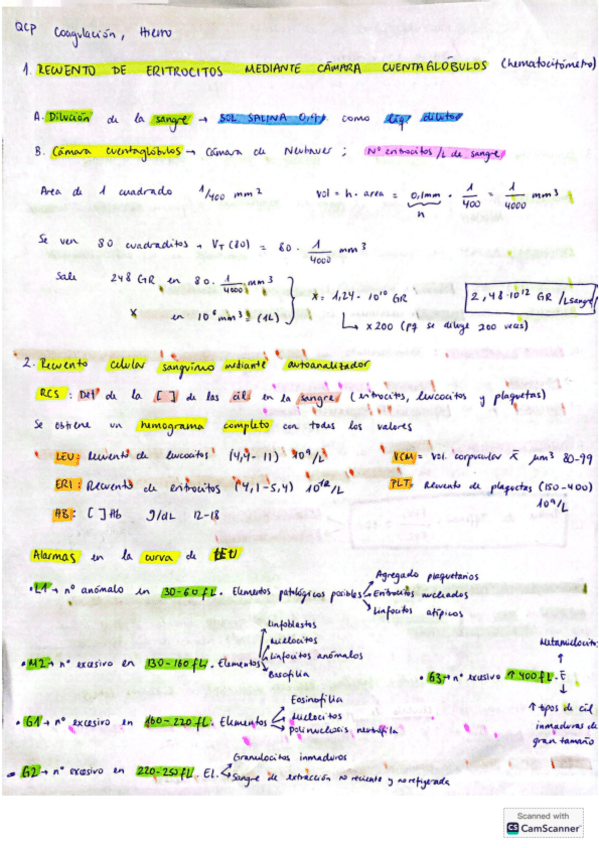 QCP Coagulación, Hierro
1. RECUENTO DE ERITROCITOS MEDIANTE CÁMARA CUENTAGLÓBULOS (hematocitómetro)
A. Dilución de la sangre → SOL SALINA 0,9% como líq diluto
B. Cámara cuentaglóbulos → Cámara de Neubauer ; Nº eritrocitos /L de sangre
Area de 1 cuadrado 1/400 mm2 vol = h · area = 0,1mm · 1/400 = 1/4000 mm3
h
Se ven 80 cuadraditos → VT (80) = 80 · 1/4000 mm3
Sale 248 GR en 80 · 1/4000 mm3
x en 10^6 mm3 = (1L)
x = 1,24 · 10^10 GR
2,48·10^12 GR /L sangre
↳ x200 (pq se diluye 200 veces)
2. Recuento celular sanguíneo mediante autoanalizador
RCS : Det de la [ ] de las cél en la sangre (eritrocitos, leucocitos y plaquetas)
Se obtiene un hemograma completo con todos los valores
LEU: Recuento de leucocitos (4,4 - 11) 10^9/L
VCM = Vol. corpuscular x̄ μm3 80-99
ERI: Recuento de eritrocitos (4,1-5,4) 10^12/L
PLT: Recuento de plaquetas (150-400) 10^9/L
AB: [ ] Hb g/dL 12-18
Alarmas en la curva de LEU
• L1 → nº anómalo en 30-60 fL. Elementos patológicos posibles
Agregado plaquetarios
Eritrocitos nucleados
Linfocitos atípicos
• M2 → nº excesivo en 130-160 fL. Elementos
Linfoblastos
Mielocitos
Linfocitos anómalos
Basofilia
• G3 → nº excesivo ↑ 400 fL. E
Metamielocitos
↑ tipos de cél inmaduras de gran tamaño
• G1 → nº excesivo en 160-220 fL. Elementos
Eosinofilia
Mielocitos
Polinucleosis neutrófila
• G2 → nº excesivo en 220-250 fL. El.
Granulocitos inmaduros
Sangre de extracción no reciente y no refrigerada
Scanned with
CS CamScanner